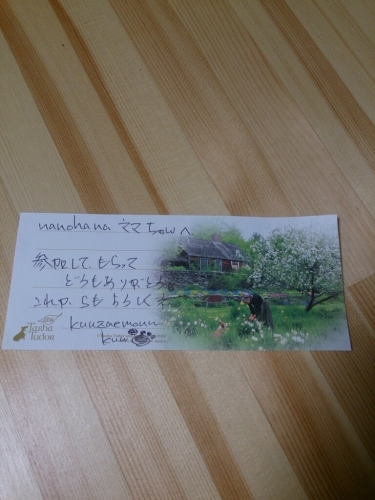 nanohana ママちゃんへ
参加して、もらって
どうもありがとう。
これからもよろしくネ
kuuzaemonn
kuu
Tasha
Tudor